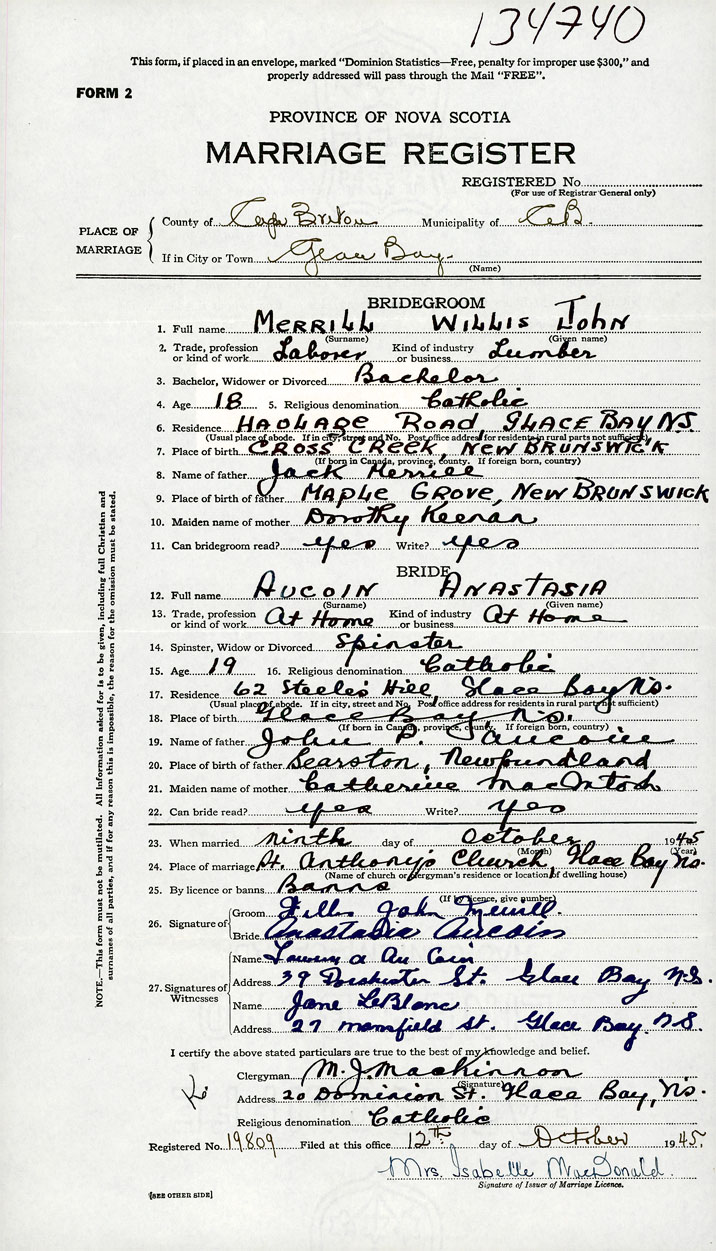 134740
This form, if placed in an envelope, marked "Dominion Statistics—Free, penalty for improper use $300," and
properly addressed will pass through the Mail "FREE".
FORM 2
PROVINCE OF NOVA SCOTIA
MARRIAGE REGISTER
REGISTERED No.
(For use of Registrar General only)
PLACE OF MARRIAGE
County of Cape Breton Municipality of C.B.
If in City or Town Glace Bay.
(Name)
BRIDEGROOM
1. Full name MERRILL WILLIS JOHN
(Surname) (Given name)
2. Trade, profession or kind of work Laborer Kind of industry or business Lumber
3. Bachelor, Widower or Divorced Bachelor
4. Age 18 5. Religious denomination Catholic
6. Residence HAOLAGE ROAD, GLACE BAY N.S.
(Usual place of abode. If in city, street and No. Post office address for residents in rural parts not sufficient)
7. Place of birth CROSS CREEK, NEW BRUNSWICK
(If born in Canada, province, county. If foreign born, country)
8. Name of father Jack Merrill
9. Place of birth of father MAPLE GROVE, NEW BRUNSWICK
10. Maiden name of mother Dorothy Keenan
11. Can bridegroom read? yes Write? yes
BRIDE
12. Full name AUCOIN ANASTASIA
(Surname) (Given name)
13. Trade, profession or kind of work At Home Kind of industry or business At Home
14. Spinster, Widow or Divorced Spinster
15. Age 19 16. Religious denomination Catholic
17. Residence 62 Steeles Hill, Glace Bay N.S.
(Usual place of abode. If in city, street and No. Post office address for residents in rural parts not sufficient)
18. Place of birth Glace Bay, N.S.
(If born in Canada, province, county. If foreign born, country)
19. Name of father John P. Aucoin
20. Place of birth of father Searston, Newfoundland
21. Maiden name of mother Catherine MacIntosh
22. Can bride read? yes Write? yes
23. When married ninth day of October 1945
(Month) (Year)
24. Place of marriage St. Anthony's Church, Glace Bay N.S.
(Name of church or clergyman's residence or location of dwelling house)
25. By licence or banns Banns
(If by licence, give number)
26. Signature of
Groom John Merrill.
Bride Anastasia Aucoin
27. Signatures of Witnesses
Name a Au Coin
Address 39 St. Glace Bay N.S.
Name Jane LeBlanc
Address 27 Mansfield St. Glace Bay. N.S.
I certify the above stated particulars are true to the best of my knowledge and belief.
Clergyman M. J. MacKinnon
(Signature)
Address 20 Dominion St. Glace Bay, N.S.
Religious denomination Catholic
Registered No. 19809 Filed at this office 12th. day of October 1945.
Mrs. Isabelle MacDonald.
Signature of Issuer of Marriage Licence.
[SEE OTHER SIDE]
NOTE.—This form must not be mutilated. All information asked for is to be given, including full Christian and
surnames of all parties, and if for any reason this is impossible, the reason for the omission must be stated.